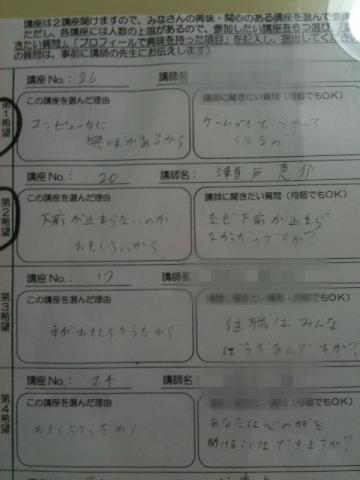 講座は2講座聞けますので、みなさんの興味・関心のある講座を選んで受講
ただし、各講座には人数の上限があるので、参加したい講座を6つ選び、
きたい質問」、「プロフィールで興味を持った項目」を記入し、提出してください
の質問は、事前に講師の先生にお伝えします)
講座No.: 26 講師名
第1希望
この講座を選んだ理由
コンピュータに
興味があるから
講師に聞きたい質問(何個でもOK)
ゲームってどうやって
つくるの
講座No.: 20 講師名: 瀬戸恵介
第2希望
この講座を選んだ理由
下痢が止まらないのが
おもしろいから
講師に聞きたい質問(何個でもOK)
なぜ下痢が止まら
なかったのですか?
講座No.: 17 講師名:
第3希望
この講座を選んだ理由
おもしろそうだから
(何個でもOK)
住職はみんな
ぼうずなんですか?
講座No.: 24 講師名:
第4希望
この講座を選んだ理由
おもしろそうだから
(何個でもOK)
あなたは心のかぎを
開けることはできますか?